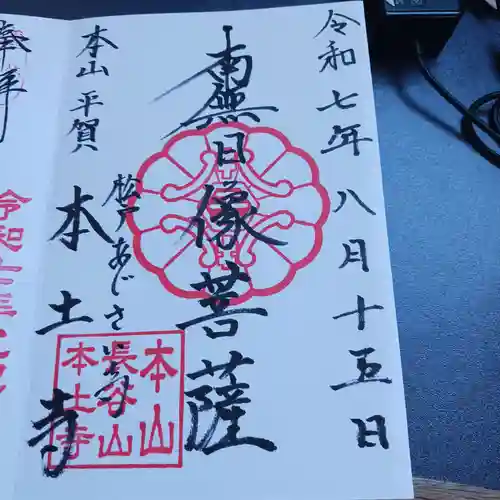 令和七年八月十五日
南無日像菩薩
松戸あじさい寺
本山平賀
本土寺
本山
長谷山
本土寺
奉拝